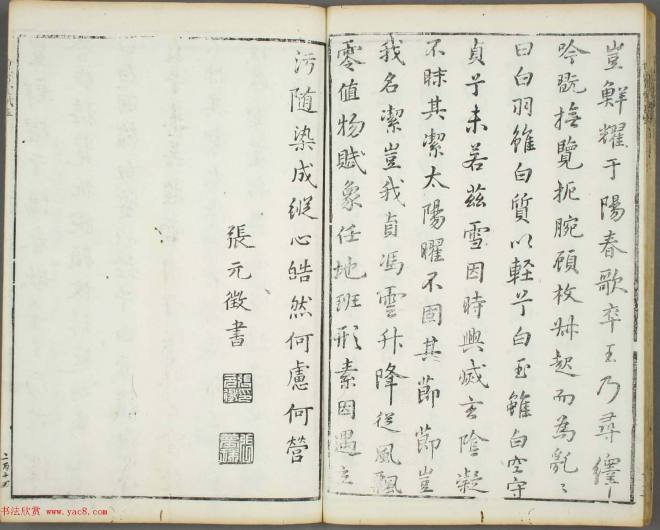 豈鮮耀于陽春歌卒王乃尋繹
吟翫撫覽扼腕顧枚叔起而為亂亂
曰白羽雖白質以軽兮白玉雖白空守
貞兮未若茲雪因時興滅玄陰凝
不昧其潔太陽曜不固其節節豈
我名潔豈我貞馮雲升降從風飄
零值物賦象任地班形素因遇立
污隨染成縱心皓然何慮何營
張元徵書
书法欣赏 www.yac8.com